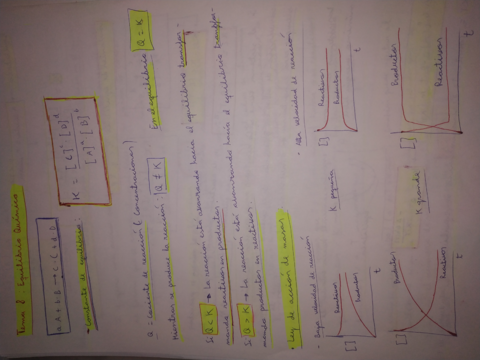 Tema 8: Equilibrio Químico
aA + bB → cC + dD
• Constante de equilibrio:
K = [C]^c [D]^d
[A]^a [B]^b
Q = cociente de reacción (concentraciones)
Mientras se produce la reacción: Q ≠ K En el equilibrio Q = K
Si Q < K → la reacción está avanzando hacia el equilibrio transfor-
mando reactivos en productos
Si Q > K → la reacción está avanzando hacia el equilibrio transfor-
mando productos en reactivos
• Ley de acción de masas:
• Baja velocidad de reacción
• Alta velocidad de reacción
[]
Reactivos
Productos
t
K pequeña
[]
Reactivos
Productos
t
[]
Productos
Reactivos
t
K grande
[]
Productos
Reactivos
t